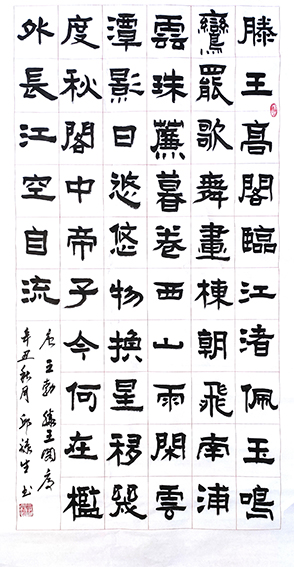 滕王高閣臨江渚佩玉鳴
鸞罷歌舞畫棟朝飛南浦
雲珠簾暮卷西山雨閑雲
潭影日悠悠物換星移幾
度秋閣中帝子今何在檻
外長江空自流
唐王勃滕王閣序
辛丑秋月邱生书